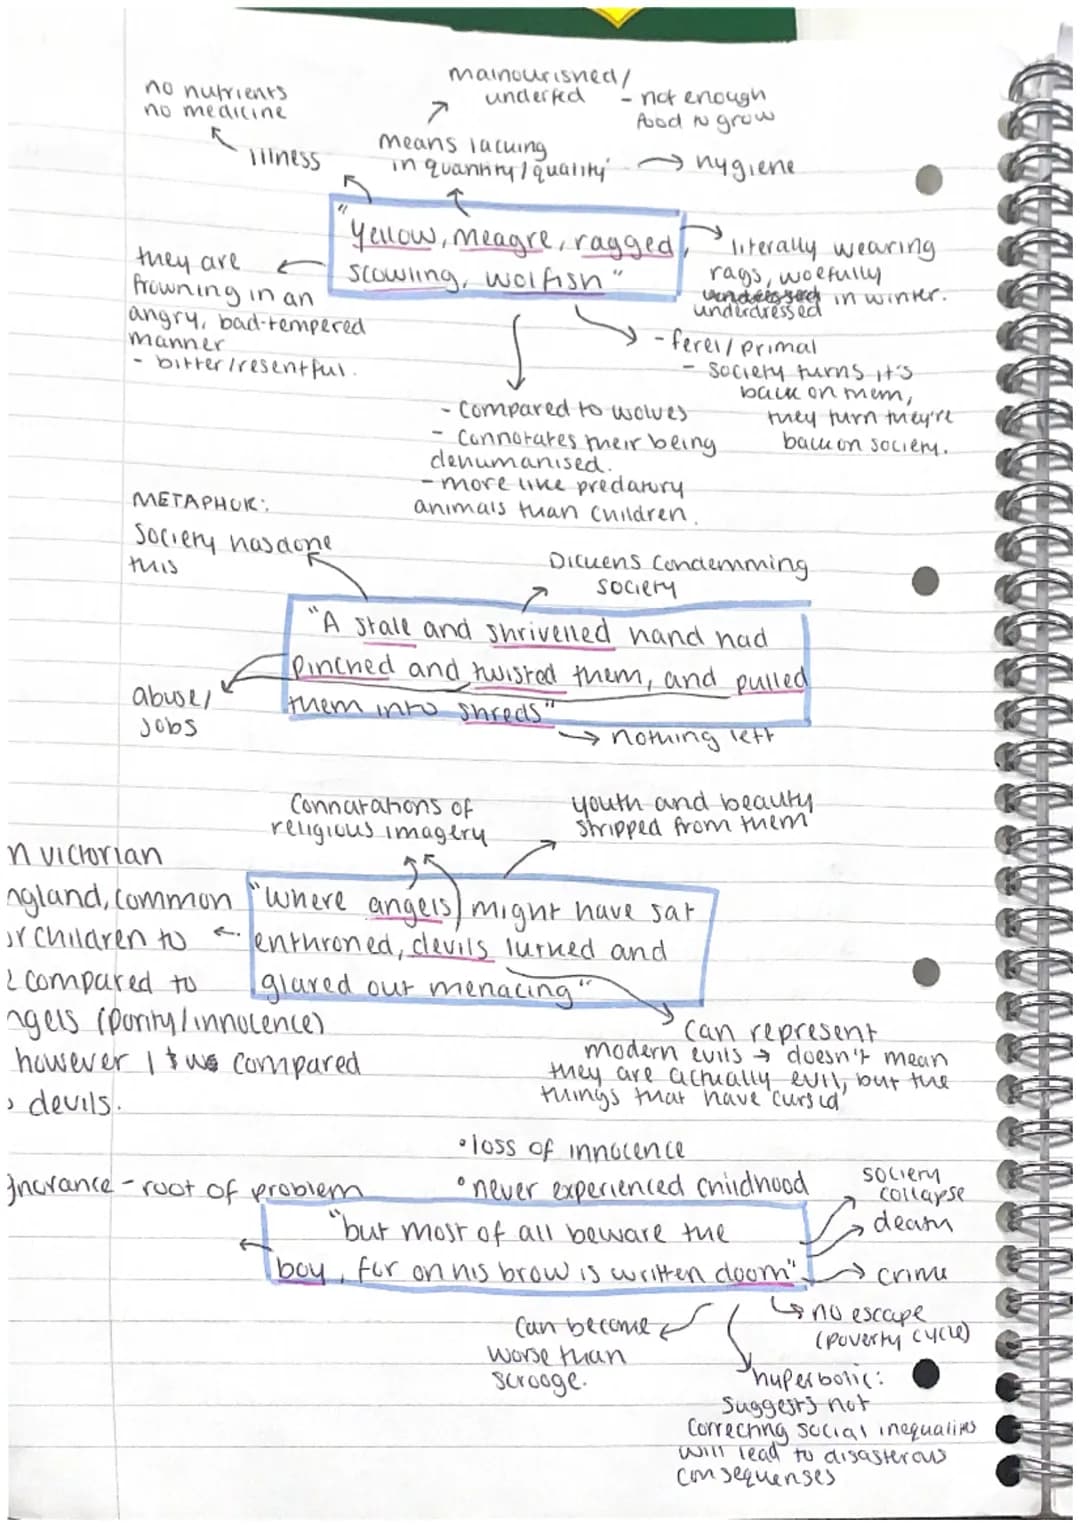 no nutrients
no medicine
Illness
malnourished/
underfed
- not enough
food to grow
means lacking
in quantity/quality
hygiene
"Yellow, meagre, ragged,
scowling, wolfish"
they are
frowning in an
angry, bad-tempered
manner
- bitter/resentful.
literally wearing
rags, woefully
in winter.
underdressed
- feral/primal
- society turns it's
back on them,
they turn they're
back on society.
- Compared to wolves
- Connotates their being
dehumanised.
- more like predatory
animals than children.
METAPHOR:
Society has done
this
Dickens condemming
society
"A stale and shrivelled hand had
pinched and twisted them, and pulled
them into shreds"
abuse/
jobs
nothing left
Connotations of
religious imagery
youth and beauty
stripped from them
n victorian
ngland, common
or children to
e compared to
ngels (purity/innocence)
however I & W compared
o devils.
"Where angels might have sat
enthroned, devils lurked and
glared out menacing"
can represent
modern evils → doesn't mean
they are actually evil, but the
things that have 'cursed'
• loss of innocence
• never experienced childhood
gnorance - root of problem
"but most of all beware the
boy, for on his brow is written doom"
society
collapse
death
crime
no escape
(poverty cycle)
can become
worse than
scrooge.
hyperbolic:
suggests not
correcting social inequalities
will lead to disasterous
consequenses